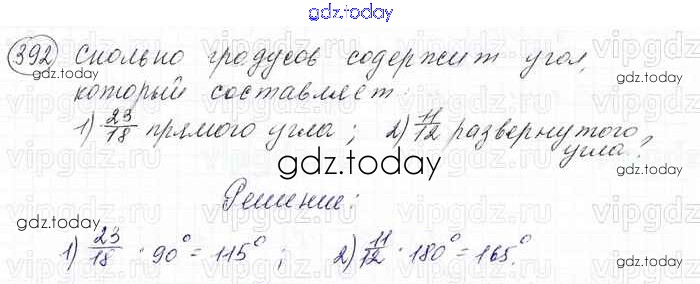 gdz.today
392 Сколько градусов содержит угол,
который составляет:
1) 23/18 прямого угла; 2) 11/12 развернутого
угла?
gdz.today
gdz.today
gdz.today
Решение:
gdz.today
gdz.today
1) 23/18 · 90° = 115°; 2) 11/12 · 180° = 165°